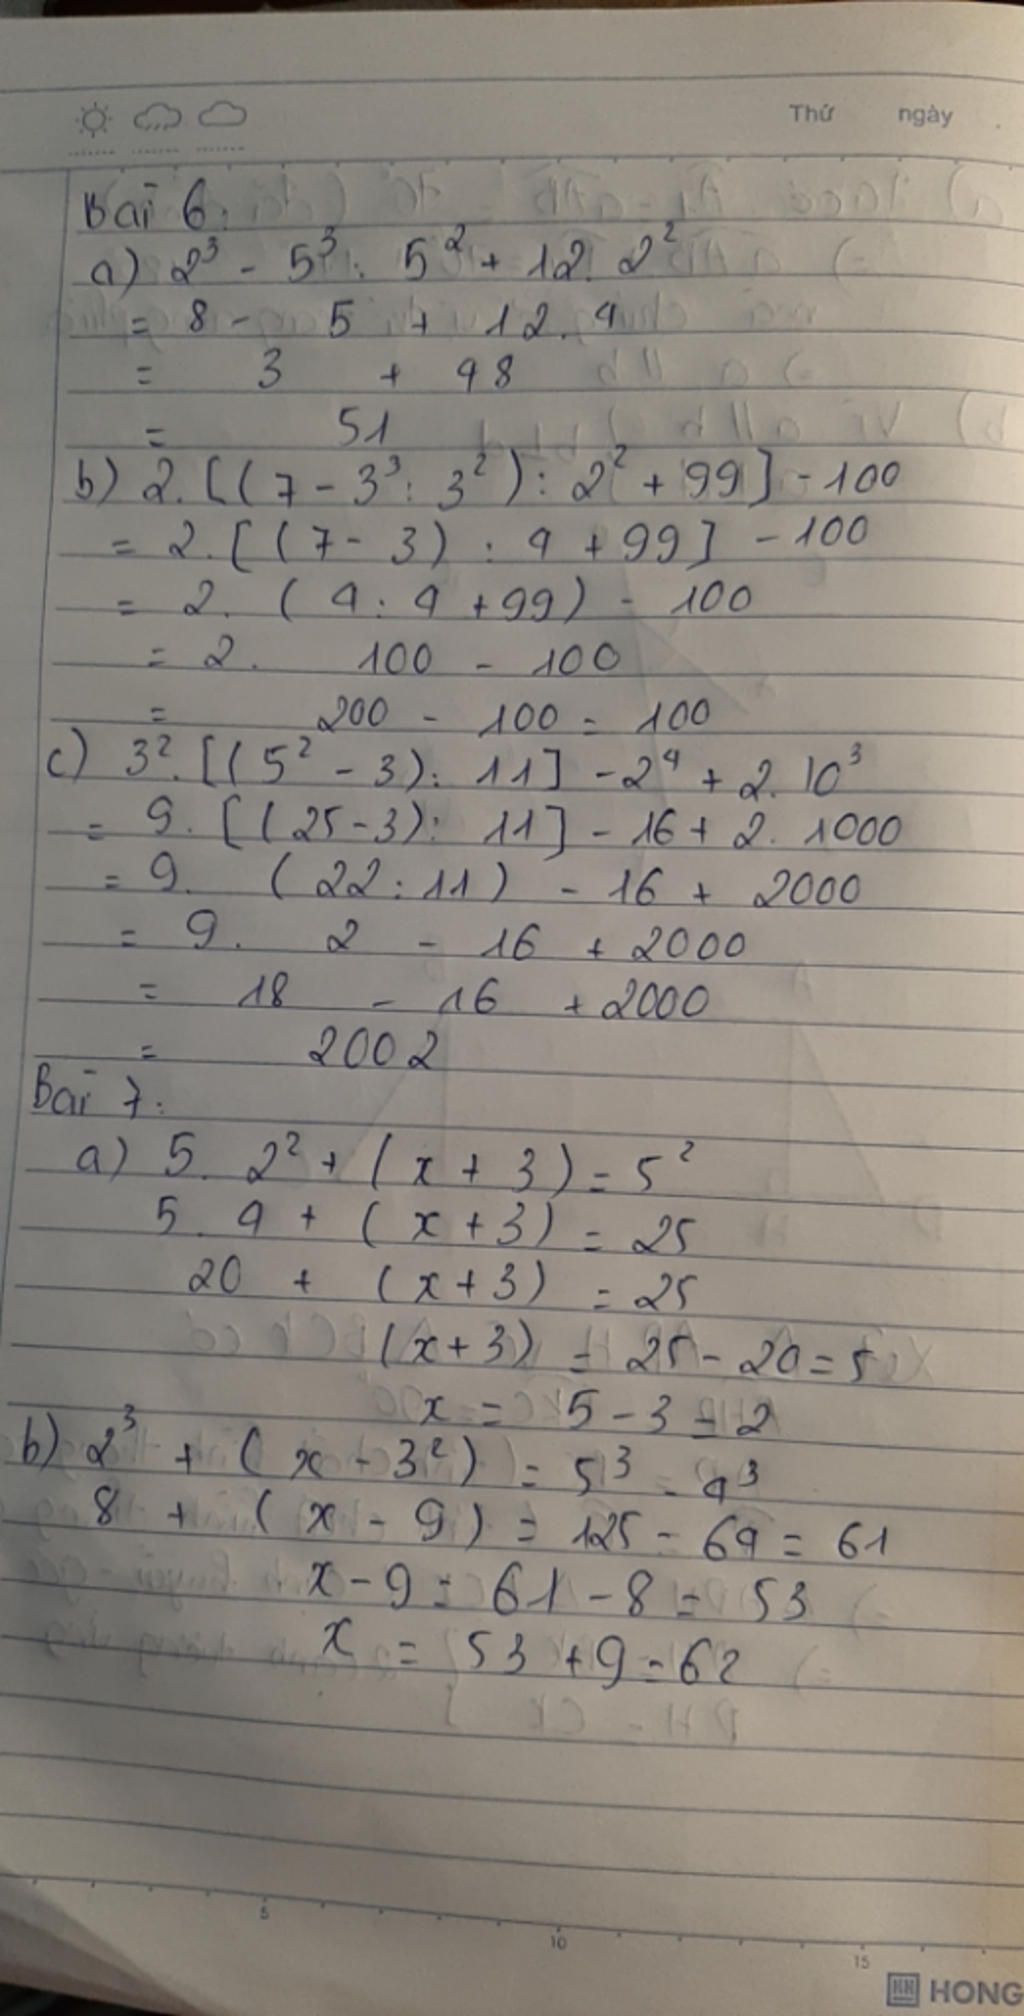 Thứ ngày
Bài 6:
a) 2³ - 5³ : 5² + 12 . 2²
= 8 - 5 + 12 . 4
= 3 + 48
= 51
b) 2. [(7 - 3³ : 3²) : 2² + 99] - 100
= 2. [(7 - 3) : 4 + 99] - 100
= 2. (4 : 4 + 99) - 100
= 2. 100 - 100
= 200 - 100 = 100
c) 3². [(5² - 3) : 11] - 2⁴ + 2. 10³
= 9. [(25 - 3) : 11] - 16 + 2. 1000
= 9. (22 : 11) - 16 + 2000
= 9. 2 - 16 + 2000
= 18 - 16 + 2000
= 2002
Bài 7:
a) 5. 2² + (x + 3) = 5²
5. 4 + (x + 3) = 25
20 + (x + 3) = 25
(x + 3) = 25 - 20 = 5
x = 5 - 3 = 2
b) 2³ + (x - 3²) = 5³ - 4³
8 + (x - 9) = 125 - 64 = 61
x - 9 = 61 - 8 = 53
x = 53 + 9 = 62
5 10 15
HONG